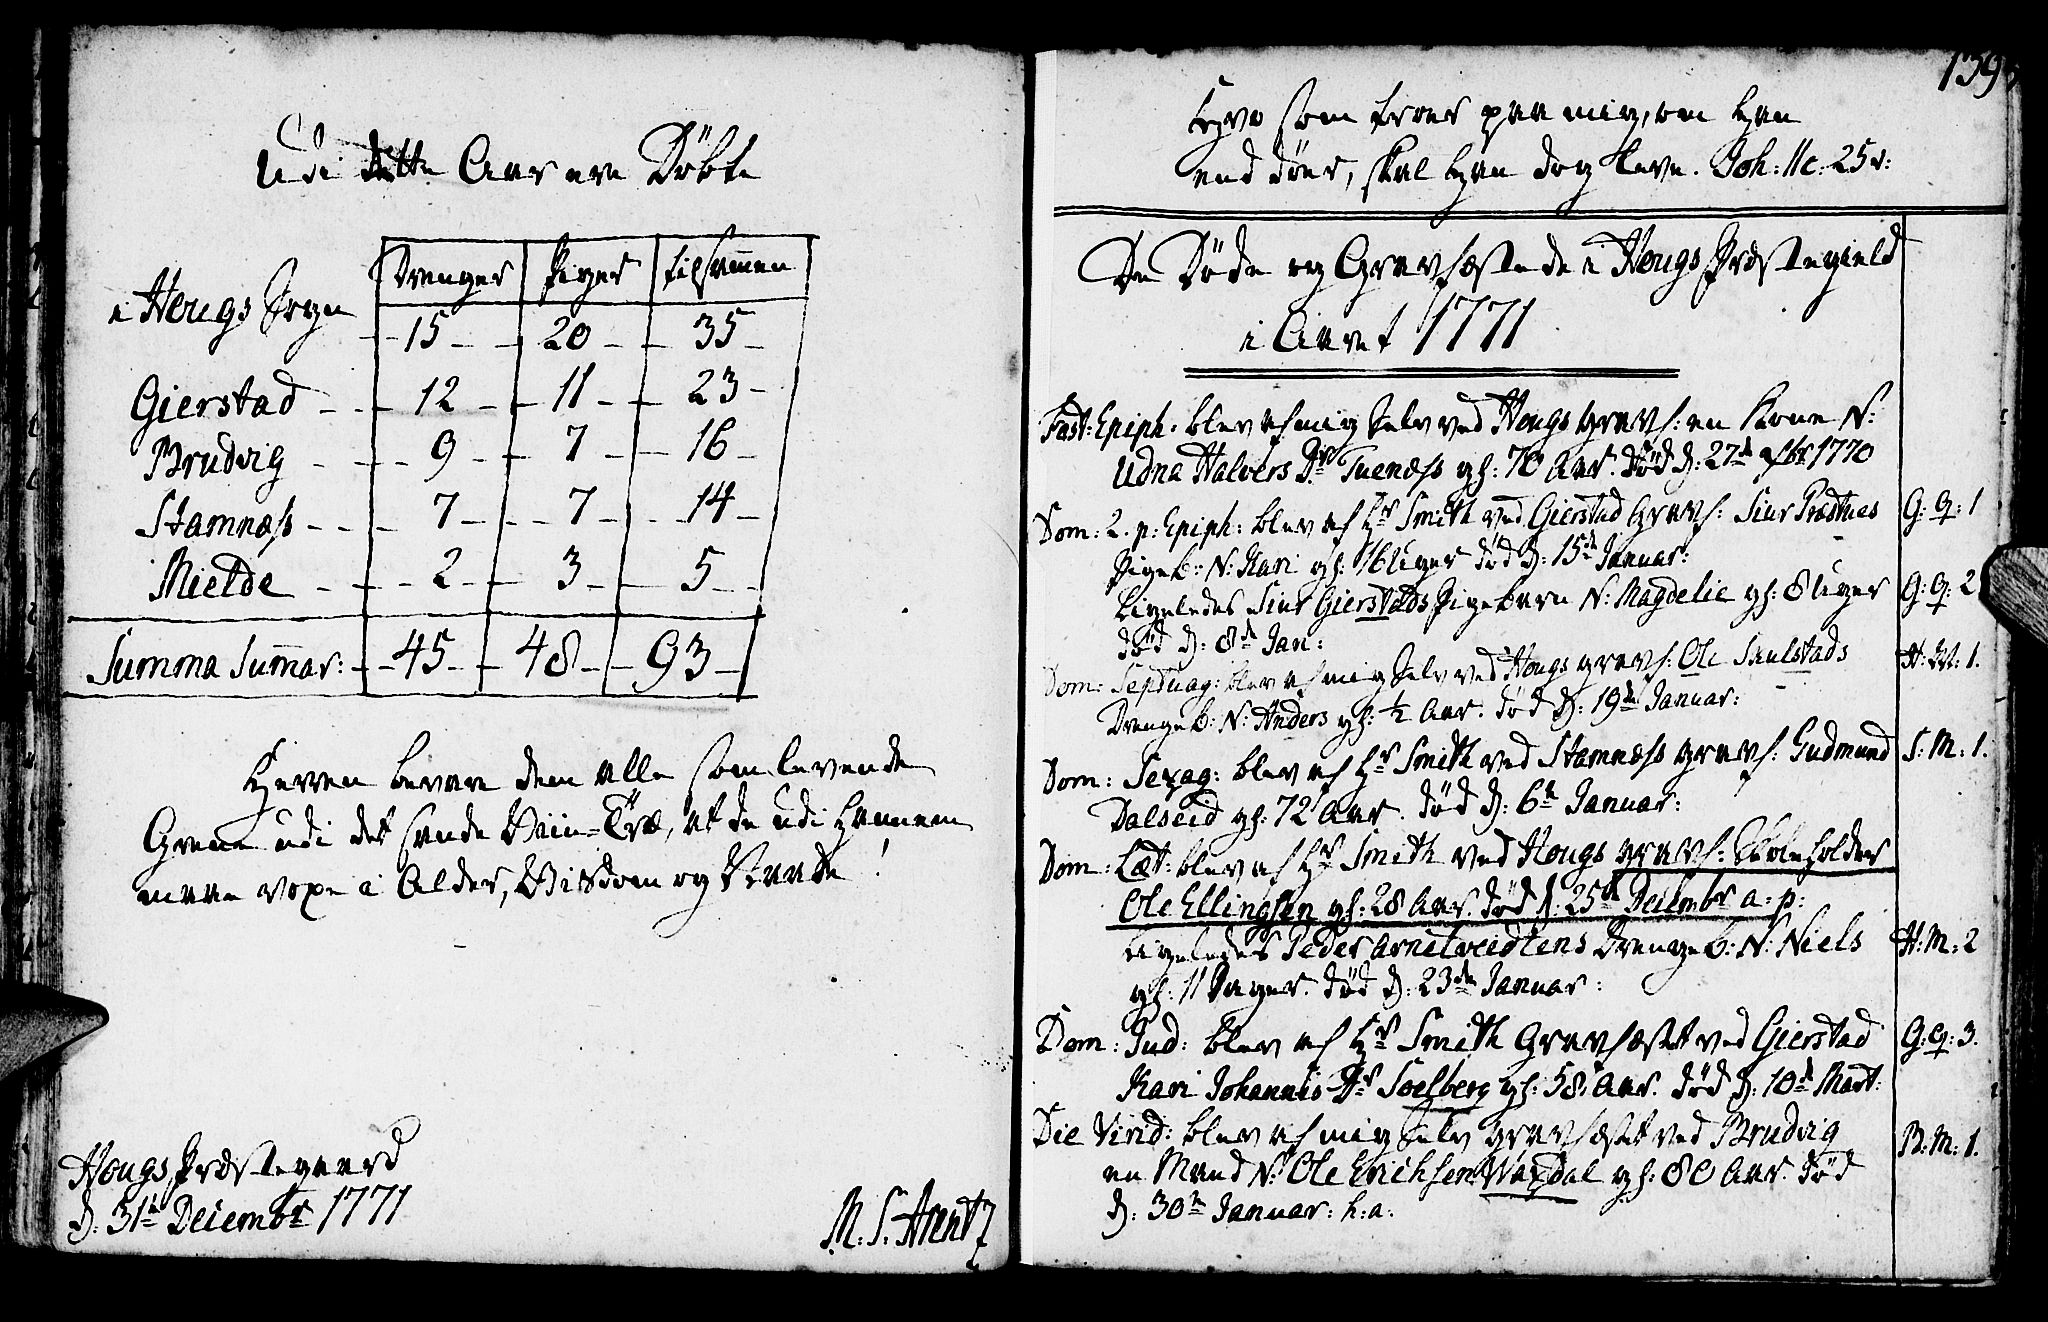 Udi dette Aar ere Döbte
Drenger Piger tilsammen
i Hougs Sogn 15 20 35
Gierstad 12 11 23
Brudvig 9 7 16
Stamnæss 7 7 14
Mielde 2 3 5
Summa Summar: 45 48 93
Herren bevare dem alle som levende
Grene udi det sande Viin-Træ, at de udi Hannem
maae voxe i Alder, Viisdom og Naade!
Hougs Præstegaard
d: 31te Decembr 1771
M. S. Arentz
139
Hvo som troer paa mig, om han
end döer, skal han dog leve. Joh: 11 c: 25 v:
De Döde og Gravfæstede i Hougs Præstegield
i Aaret 1771
Fest: Epiph: blev af mig Selv ved Hougs gravf: en Kone N:
Udna Halvers Dr Tuenæss gl: 70 Aar. död d: 27de 1770
Dom: 2. p: Epiph: blev af Hr Smith ved Gierstad Gravf: Siur Præstnes G: Q: 1
Pigeb: N: Kari gl: 16 Uger död d: 15de Januar:
Ligeledes Siur Gierstads Pigebarn N: Magdelie gl: 8 Uger G: Q: 2
död d: 8de Jan:
Dom: Septuag: blev af mig Selv ved Hougs gravf: Ole Saulstads H: M: 1.
Drengeb: N: Anders gl: 1/2 Aar. död d: 19de Januar:
Dom: Sexag: blev af Hr Smith ved Stamnæss gravf: Gudmund S: M: 1.
Dalseid gl: 72 Aar. död d: 6te Januar:
Dom: Læt: blev af Hr Smith ved Hougs gravf: Skoleholder
Ole Ellingsen gl: 28 Aar. död d: 25de Decembr a: p:
Ligeledes Peder Arnetveidtens Drengeb: N: Niels H: M: 2
gl: 11 Dager. död d: 23de Januar:
Dom: Jud: blev af Hr Smith Gravfæstet ved Gierstad G: Q: 3.
Kari Johannis Dr Soelberg gl: 58 Aar. död d: 10de Mart:
Die Virid: blev af mig Selv gravfæstet ved Brudvig
en Mand N: Ole Erichsen Waxdal gl: 80 Aar. död B: M: 1.
d: 30te Januar: h: a: